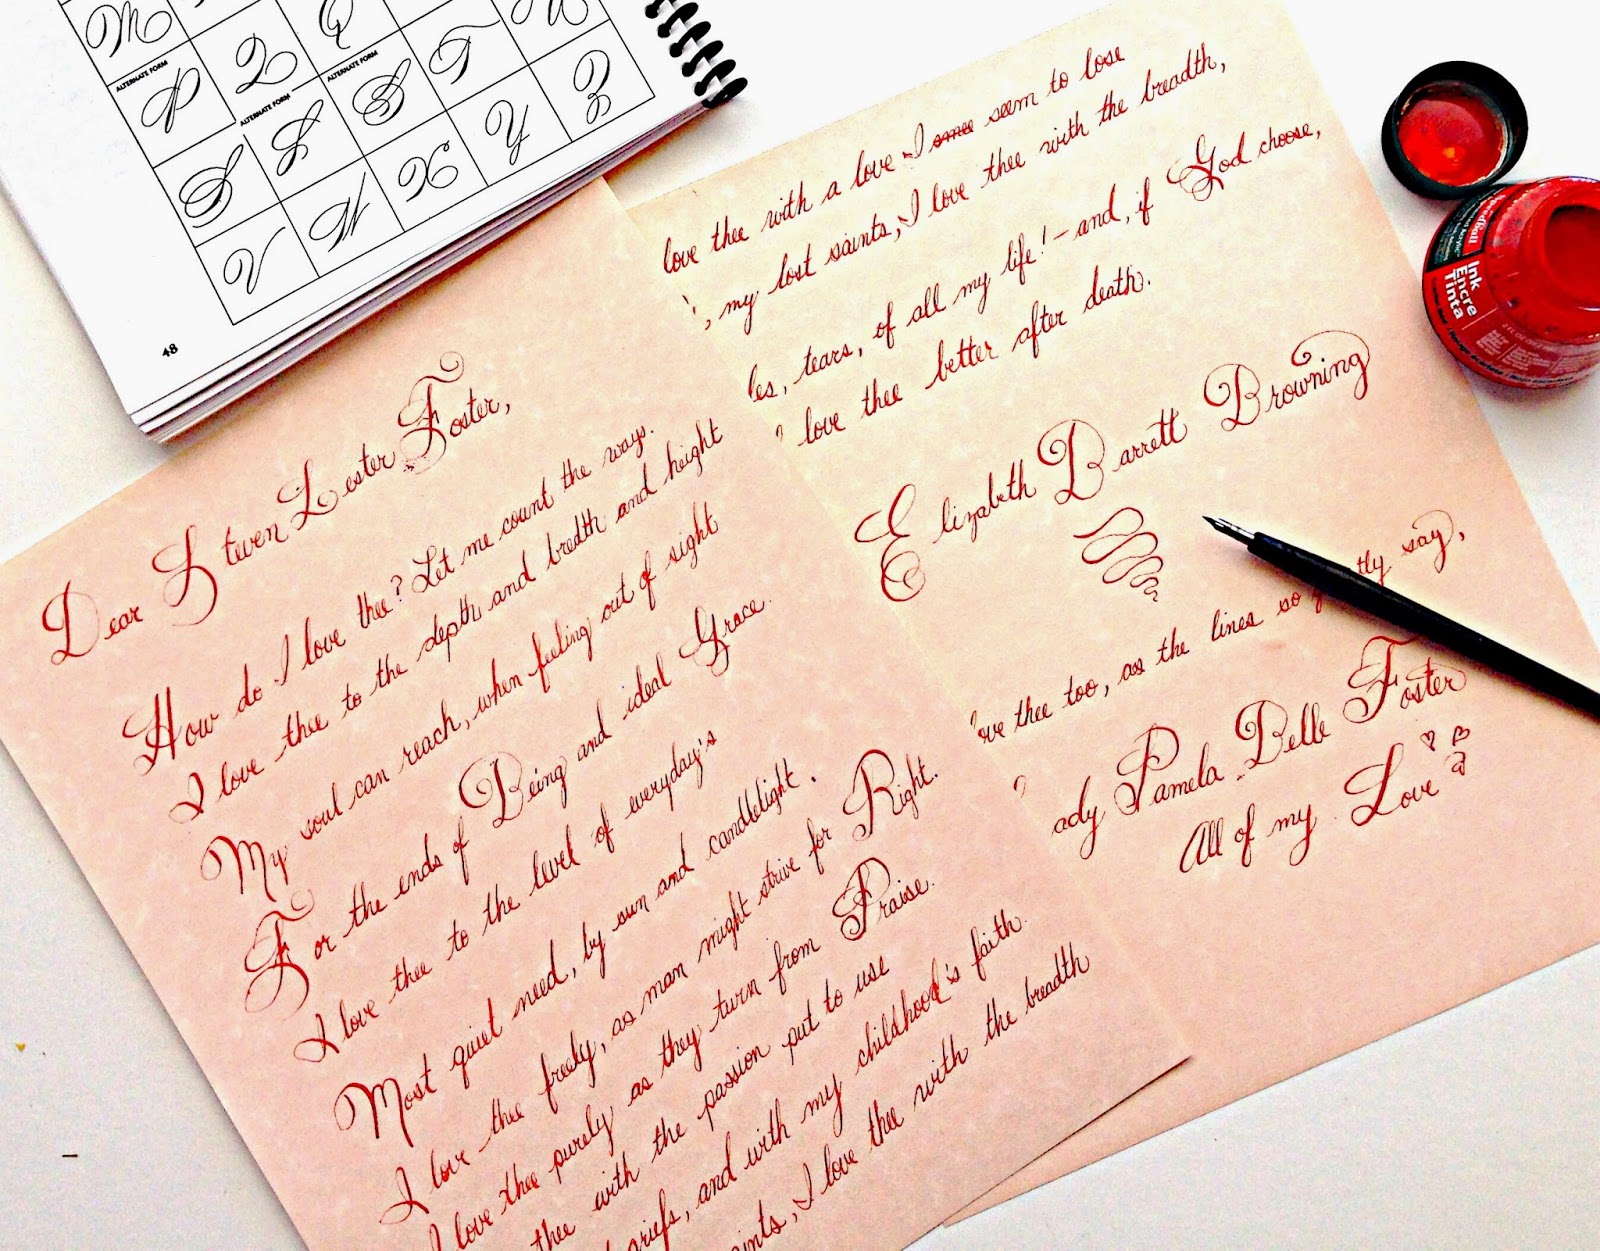 M
Q
ALTERNATE FORM
P
2
ALTERNATE FORM
T
ALTERNATE FORM
S
V
W
X
Y
Z
48
Dear Steven Lester Foster,
How do I love thee? Let me count the ways.
I love thee to the depth and bredth and height
My soul can reach, when feeling out of sight
For the ends of Being and ideal Grace.
I love thee to the level of everyday's
Most quiet need, by sun and candlelight.
I love thee freely, as man might strive for Right.
I love thee purely as they turn from Praise.
thee with the passion put to use
griefs, and with my childhood's faith.
I love thee with the breadth
love thee with a love I seem to lose
, my lost saints, I love thee with the breadth,
tears, of all my life! – and, if God choose,
love thee better after death.
Elizabeth Barrett Browning
thee too, as the lines so say,
Pamela Belle Foster
All of my Love
Ink
Encre
Tinta